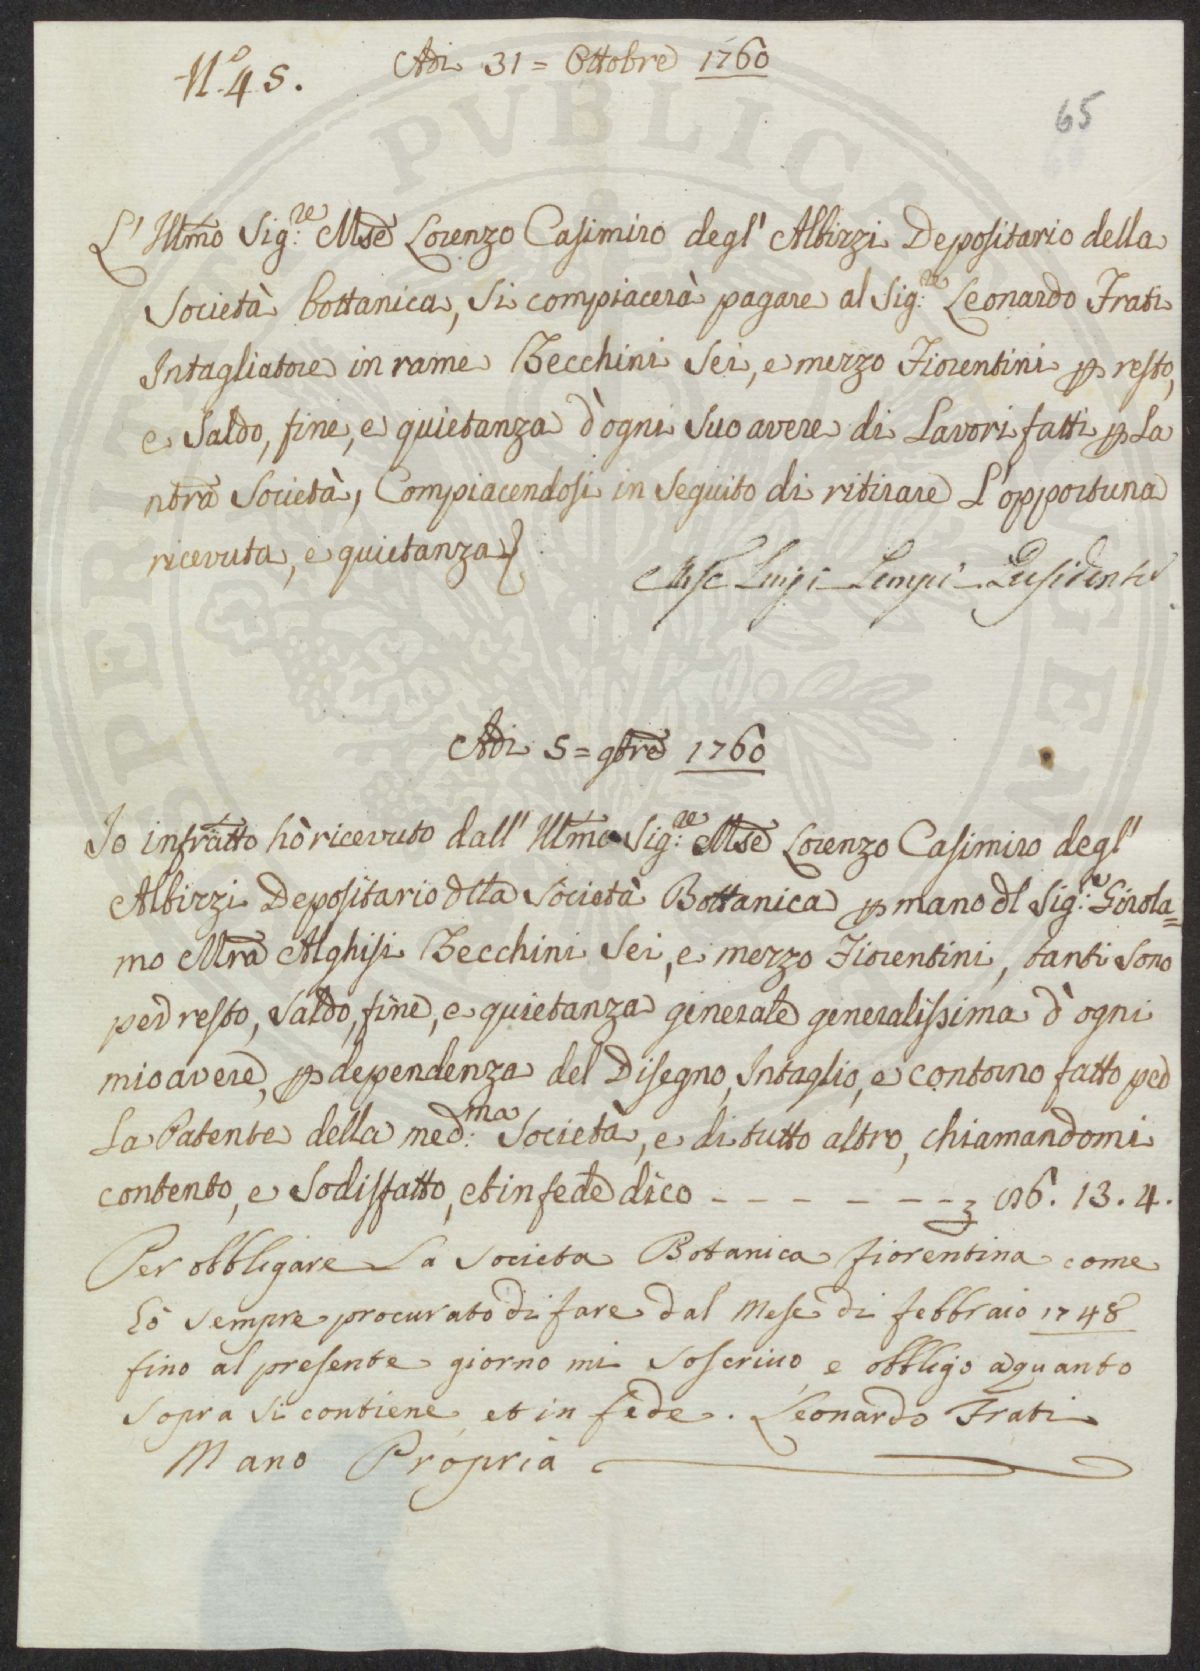 N.º 45.
Adi 31 = Ottobre 1760
65
L' Illmo Sig.re Mse Lorenzo Casimiro degl' Albizzi Depositario della
Società bottanica, si compiacerà pagare al Sig.re Leonardo Frati
Intagliatore in rame Zecchini Sei, e mezzo Fiorentini p resto,
e Saldo, fine, e quietanza d'ogni suo avere di Lavori fatti p La
ntra Società, Compiacendosi in seguito di ritirare L'opportuna
ricevuta, e quietanza
Mse Luigi Tempi Presidente
Adi 5 = 9bre 1760
Io infratto hò ricevuto dall' Illmo Sig.re Mse Lorenzo Casimiro degl'
Albizzi Depositario dlla Società Bottanica p mano dl Sig.e Girola=
mo Mra Alghisi Zecchini Sei, e mezzo Fiorentini, tanti sono
per resto, Saldo, fine, e quietanza generale generalissima d'ogni
mio avere, p dependenza del Disegno, Intaglio, e contorno fatto per
La Patente della med:ma Società, e di tutto altro, chiamandomi
contento, e Sodisfatto, et in fede dico - - - - - - - 6. 13. 4.
Per obbligare La Societa Botanica fiorentina come
ho sempre procurato di fare dal Mese di febbraio 1748
fino al presente giorno mi soscrivo e obbligo a quanto
sopra si contiene et in fede. Leonardo Frati
Mano Propria
PVBLICAE